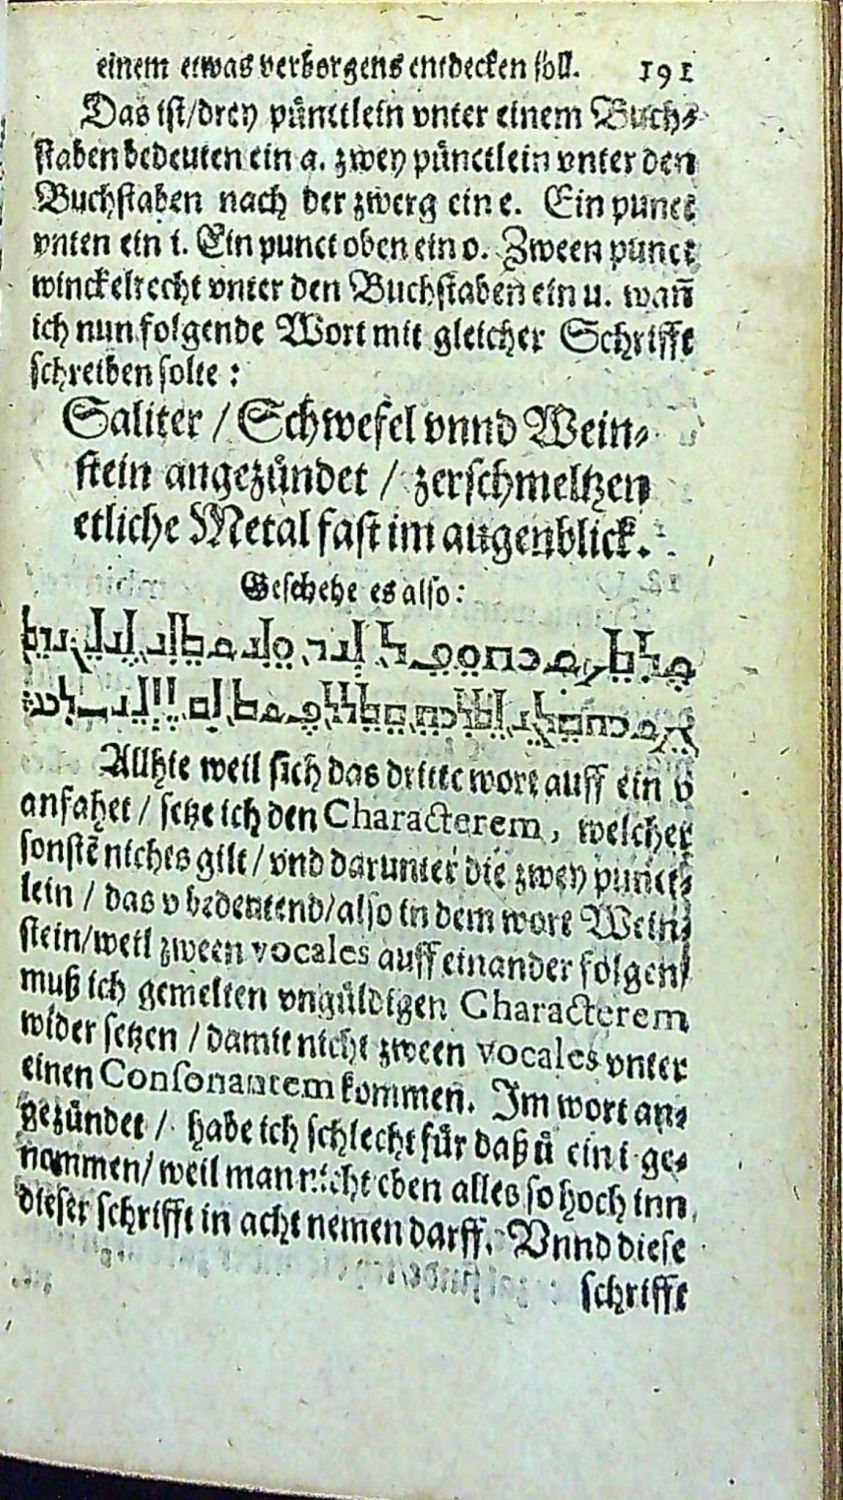 einem etwas verborgens entdecken soll. 191
Das ist/drey pünctlein vnter einem Buch⸗
staben bedeuten ein a. zwey pünctlein vnter den
Buchstaben nach der zwerg ein e. Ein punct
vnten ein i. Ein punct oben ein o. Zween punct
winckelrecht vnter den Buchstaben ein u. wañ
ich nun folgende Wort mit gleicher Schrifft
schreiben solte :
Saliter / Schwefel vnnd Wein⸗
stein angezündet / zerschmeltzen
etliche Metal fast im augenblick.
Geschehe es also:
Allhie weil sich das dritte wort auff ein v
anfahet / setze ich den Characterem, welcher
sonstẽ nichts gilt / vnd darunter die zwey punct⸗
lein / das v bedeutend/also in dem wort Wein⸗
stein/weil zween vocales auff einander folgen/
muß ich gemelten vngüldigen Characterem
wider setzen / damit nicht zween vocales vnter
einen Consonantem kommen. Im wort an⸗
gezündet / habe ich schlecht für daß ü ein i ge⸗
nommen/ weil man nicht eben alles so hoch inn
dieser schrifft in acht nemen darff. Vnnd diese
schrifft